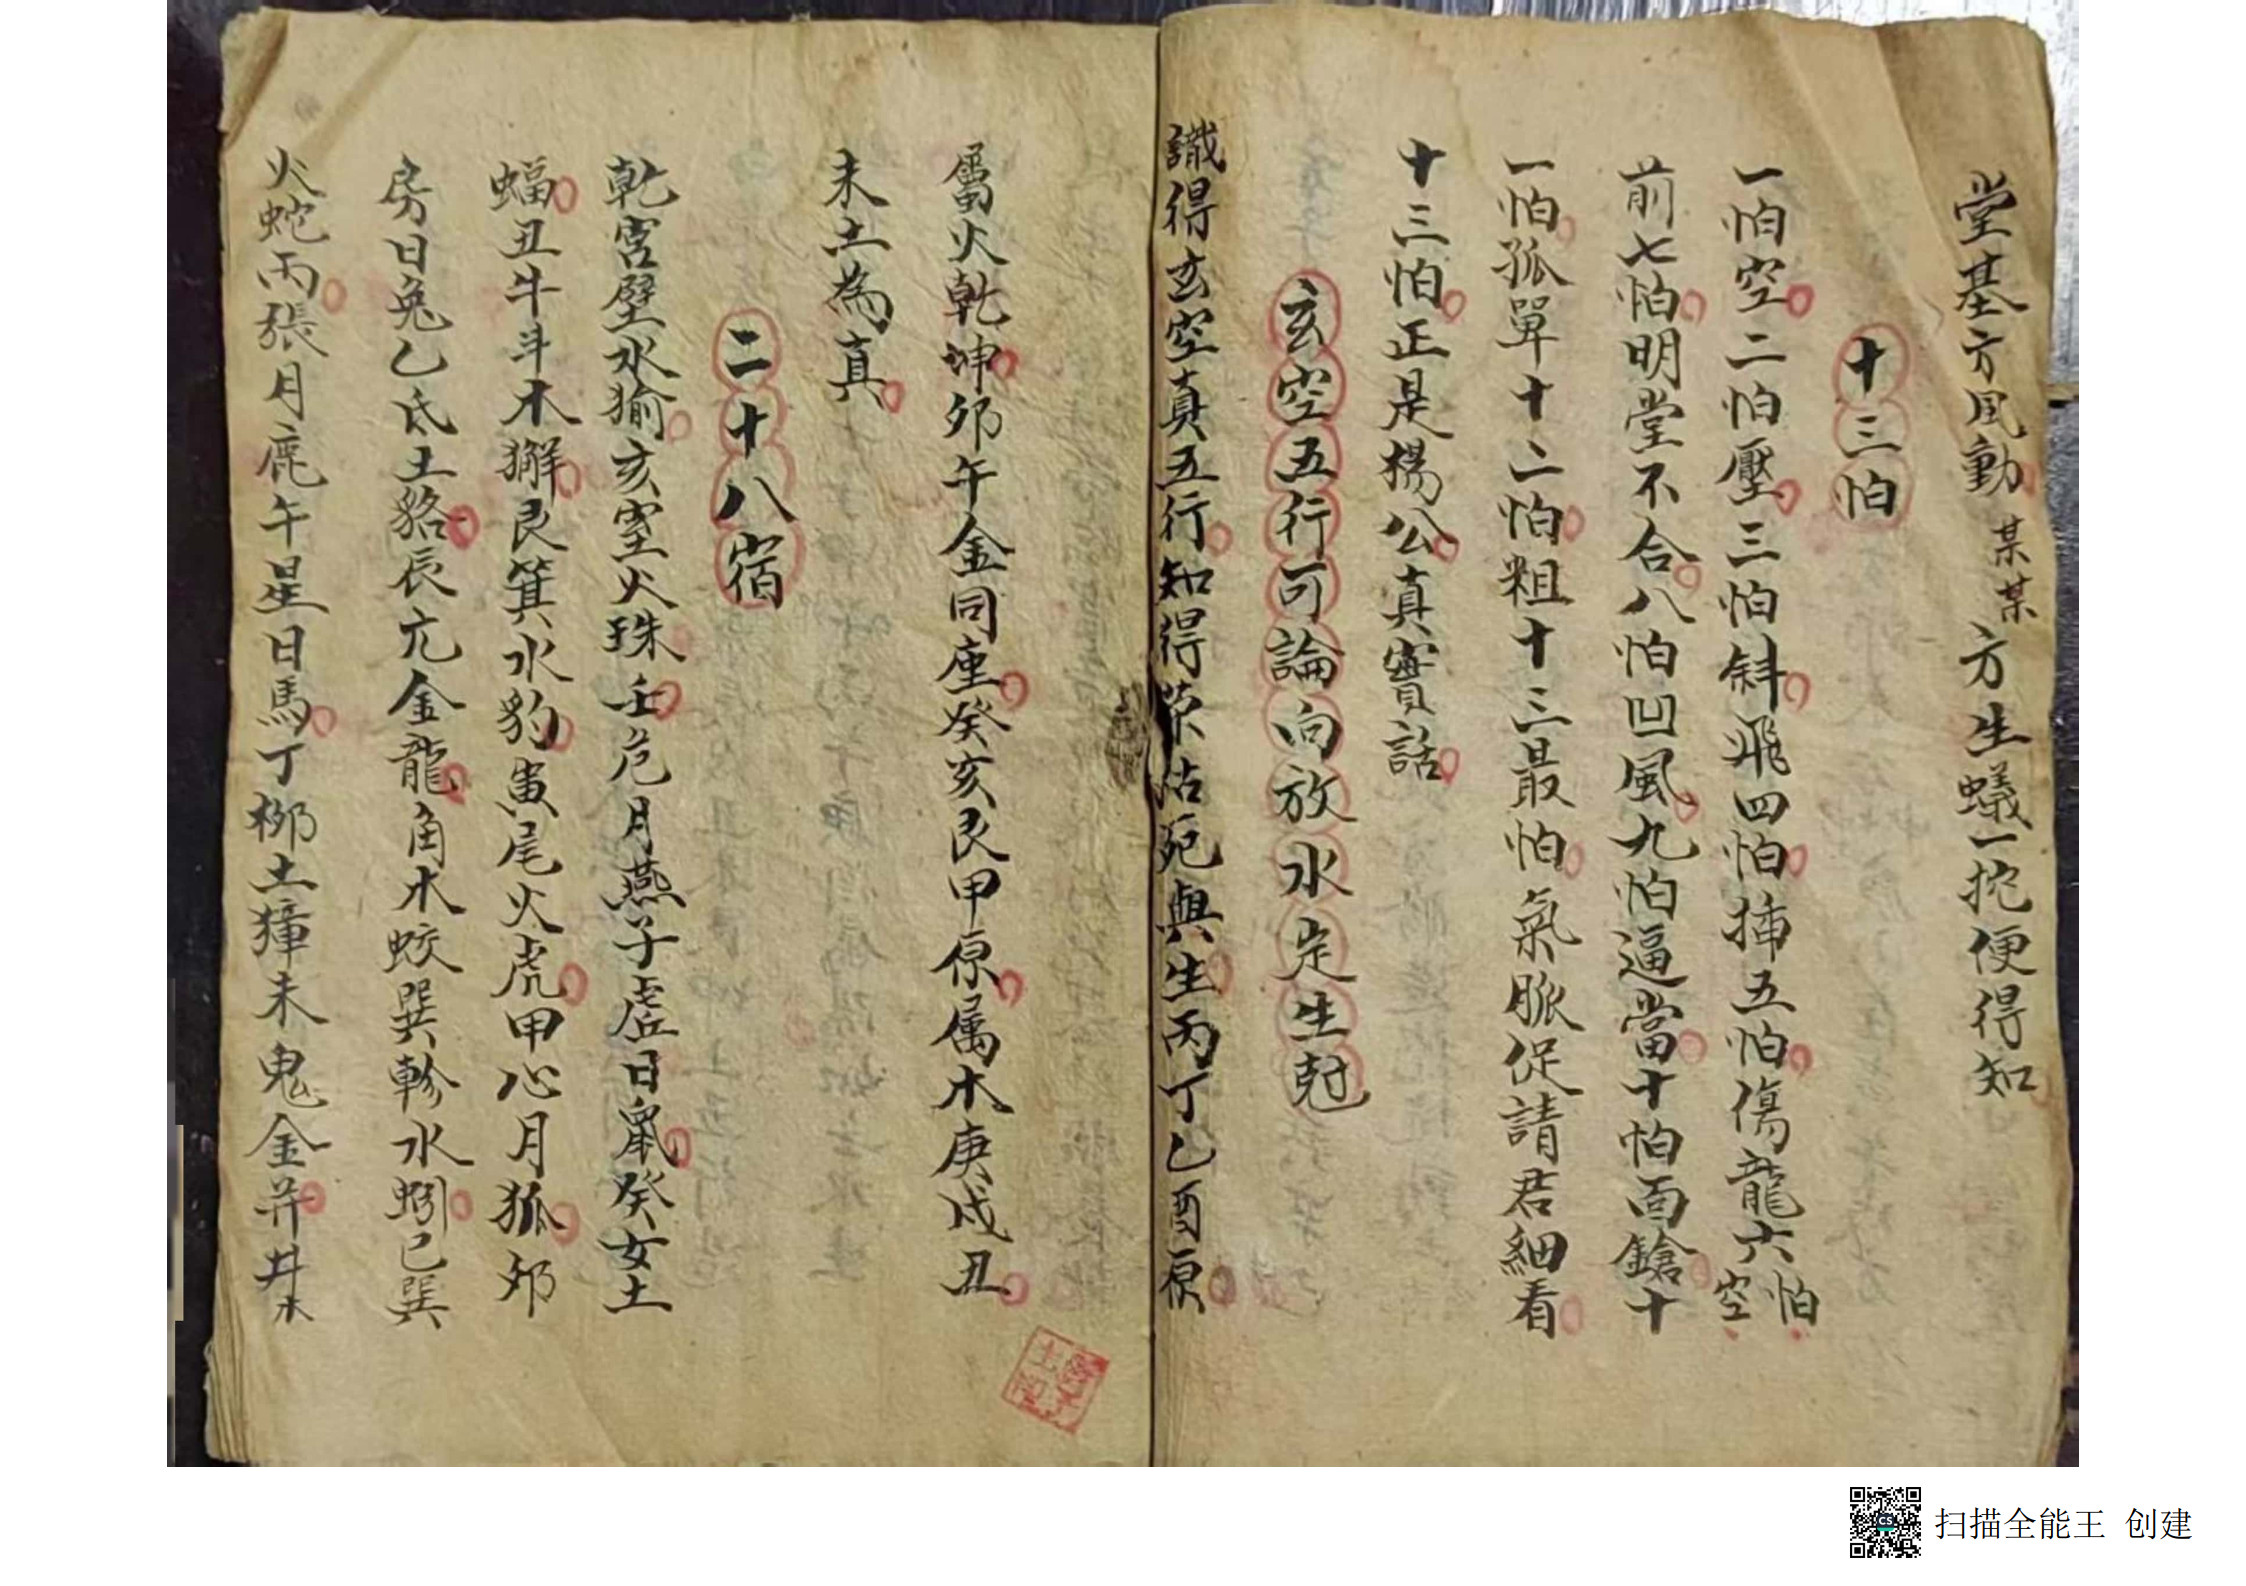 堂基方风動某某方生蟻一挖便得知
十三怕
一怕空二怕壓三怕斜飛四怕挿五怕傷龍六怕空
前七怕明堂不合八怕凹風九怕逼當十怕面鎗十
一怕孤單十二怕粗十三最怕氣脈促請君細看
十三怕正是楊公真實話
玄空五行可論向放水定生尅
識得玄空真五行知得荣枯死與生丙丁乙酉原
屬火乾坤夘午金同座癸亥艮甲原属木庚戍丑
未土為真
二十八宿
乾宮壁水㺄亥室火珠壬危月燕子虚日鼠癸女土
蝠丑牛斗木獬艮箕水豹寅尾火虎甲心月狐夘
房日兔乙氐土貉辰亢金龍角木蛟巽軫水蚓巳巽
火蛇丙張月鹿午星日馬丁栁土獐未鬼金羊井木
扫描全能王 创建